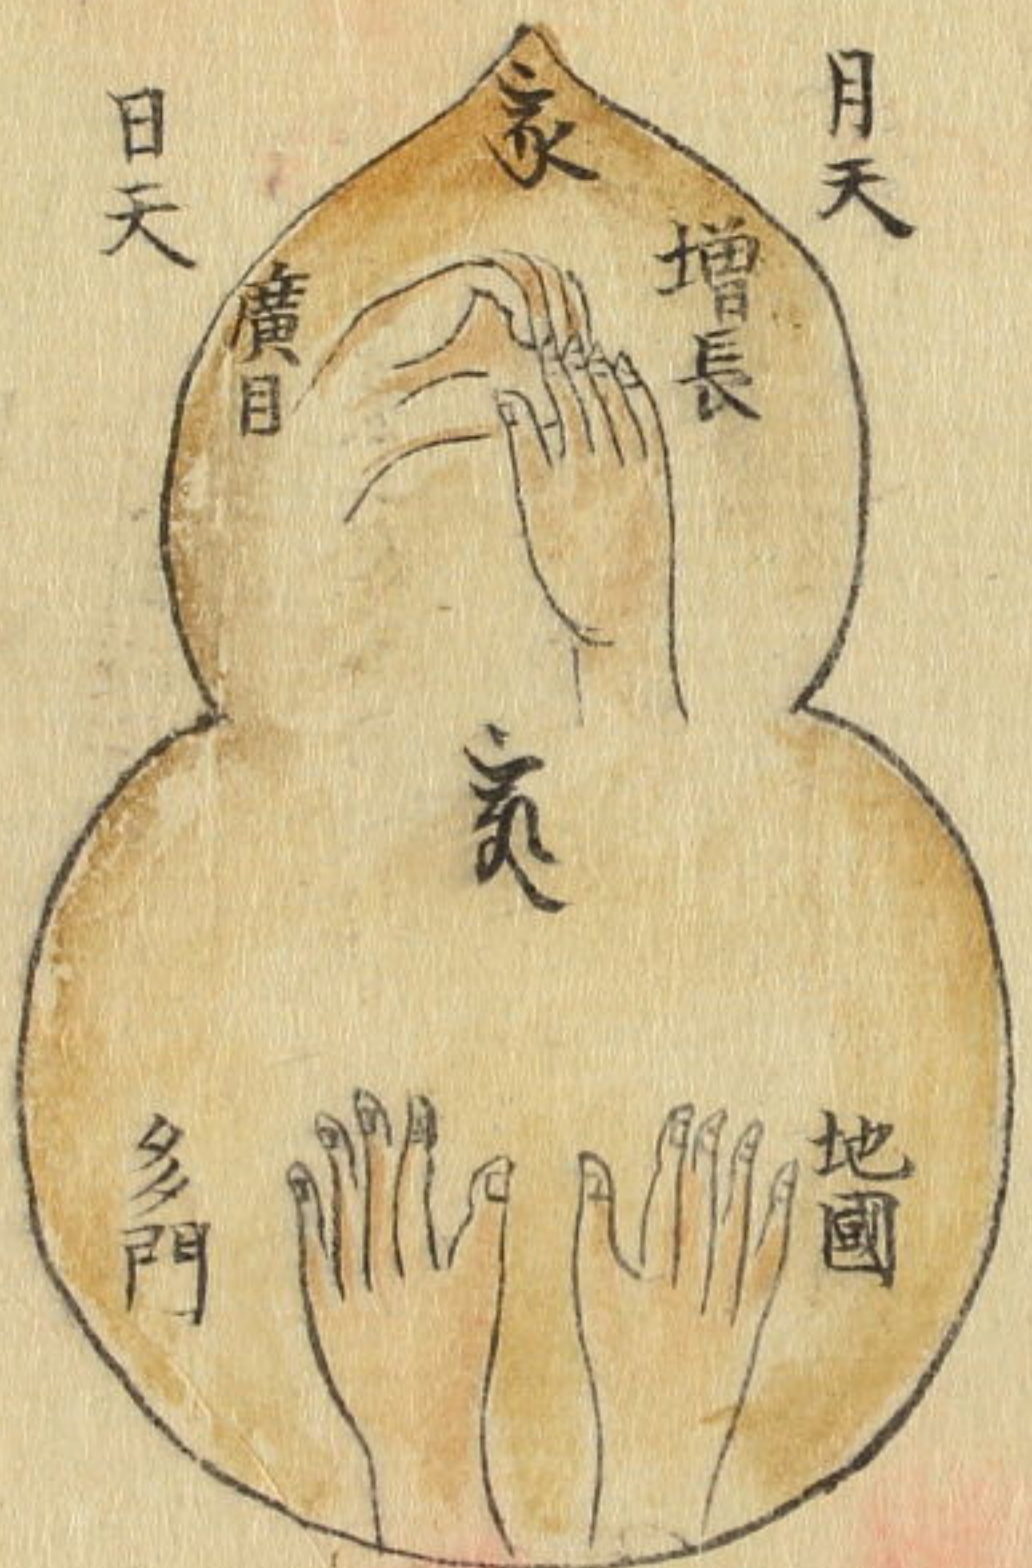 月天
日天
增長
廣目
地國
多門